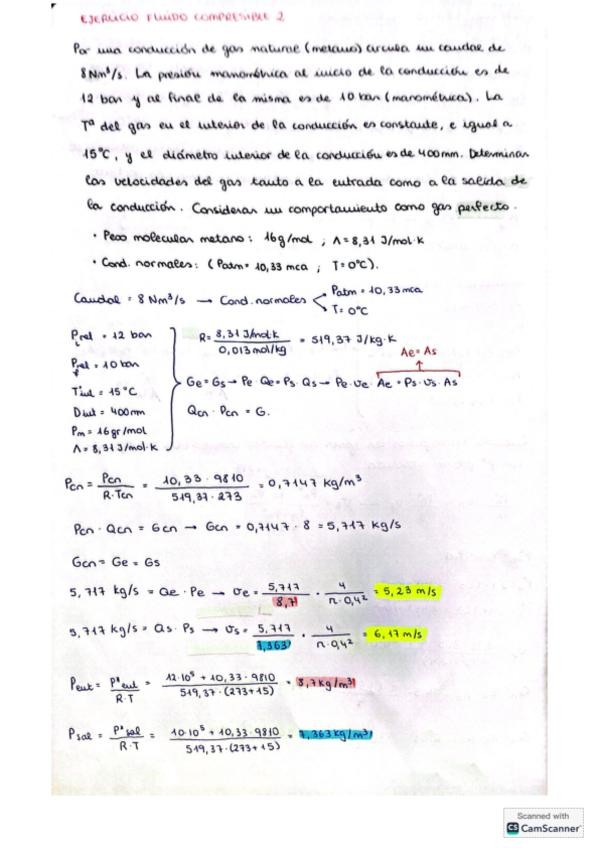 EJERCICIO FLUIDO COMPRESIBLE 2
Por una conducción de gas natural (metano) circula un caudal de
8Nm³/s. La presión manométrica al inicio de la conducción es de
12 bar y al final de la misma es de 10 bar (manométrica). La
Tª del gas en el interior de la conducción es constante, e igual a
15ºC, y el diámetro interior de la conducción es de 400mm. Determinar
las velocidades del gas tanto a la entrada como a la salida de
la conducción. Considerar un comportamiento como gas perfecto.
• Peso molecular metano: 16g/mol ; Λ = 8,31 J/mol·K
• Cond. normales: (Patm = 10,33 mca ; T = 0ºC).
Caudal = 8 Nm³/s → Cond. normales
Patm = 10,33 mca
T = 0ºC
Prel = 12 bar
Prel = 10 bar
Tint = 15ºC
Dint = 400mm
Pm = 16gr/mol
Λ = 8,31 J/mol·K
R = 8,31 J/mol·K / 0,013 mol/kg = 519,37 J/kg·K
Ae = As
Ge = Gs → Pe·Qe = Ps·Qs → Pe·ve·Ae = Ps·vs·As
Qcn · Pcn = G.
Pcn = Pcn / R·Tcn = 10,33 · 9810 / 519,37 · 273 = 0,7147 kg/m³
Pcn · Qcn = Gcn → Gcn = 0,7147 · 8 = 5,717 kg/s
Gcn = Ge = Gs
5,717 kg/s = Qe · Pe → ve = 5,717 / 8,71 · 4 / π·0,4² = 5,23 m/s
5,717 kg/s = Qs · Ps → vs = 5,717 / 7,363 · 4 / π·0,4² = 6,17 m/s
Pent = P*ent / R·T = 12·10⁵ + 10,33·9810 / 519,37·(273+15) = 8,7 kg/m³
Psal = P*sal / R·T = 10·10⁵ + 10,33·9810 / 519,37·(273+15) = 7,363 kg/m³
Scanned with
CS CamScanner